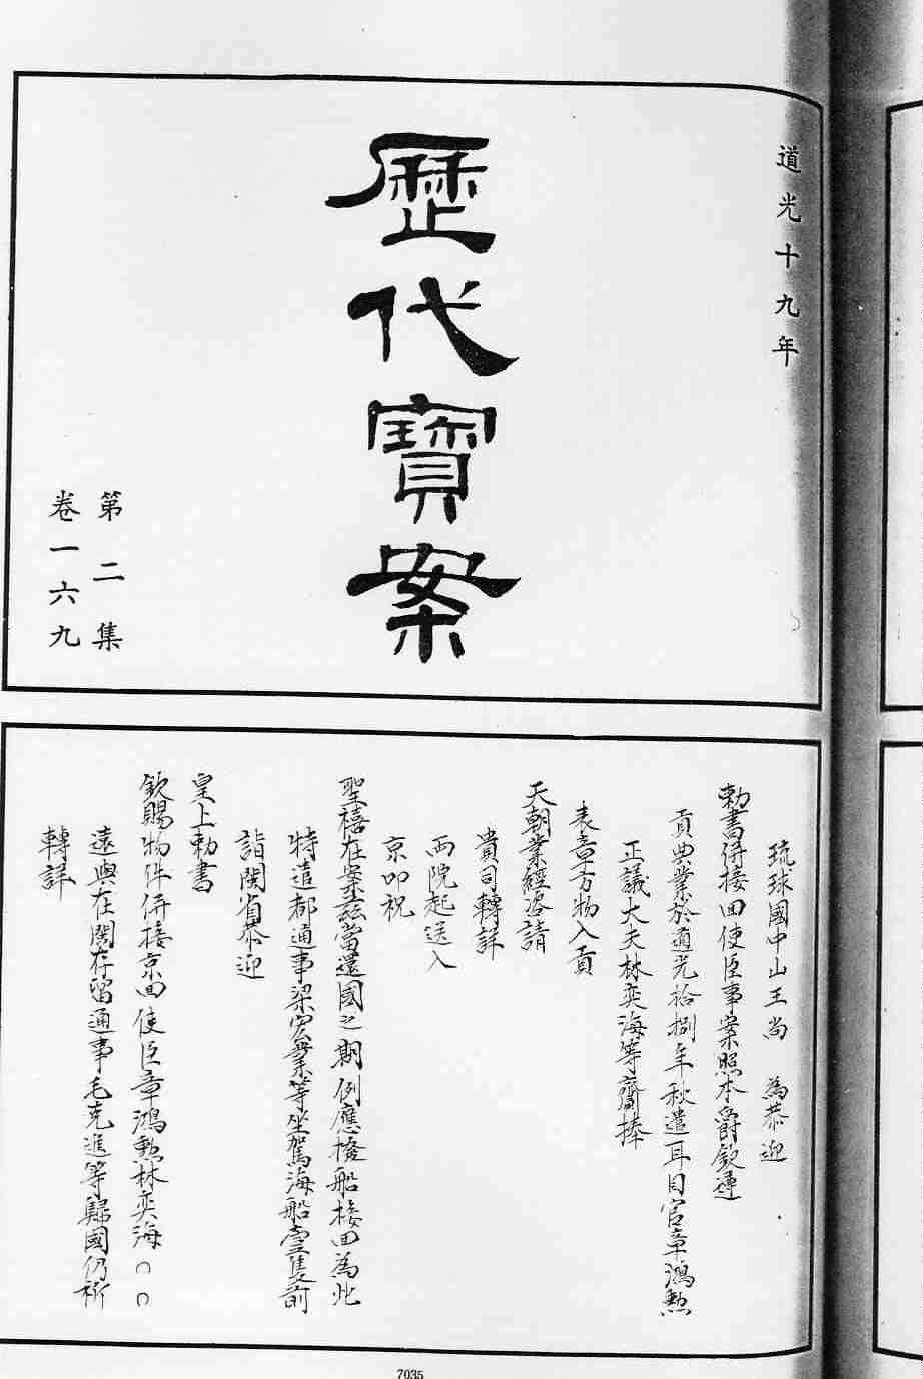 道光十九年
歷代寶案
第二集
卷一六九
琉球國中山王尚 為恭迎
勅書併接回使臣事案照本爵欽遵
貢典業於道光拾捌年秋遣耳目官章鴻勲
正議大夫林奕海等齎捧
表章方物入貢
天朝業經咨請
貴司轉詳
両院起送入
京叩祝
聖禧在案茲當還國之期例應撥船接回為此
特遣都通事梁必業等坐駕海船壹隻前
詣閩省恭迎
皇上勅書
欽賜物件併接京回使臣章鴻勲林奕海○○
遠與在閩存留通事毛克進等歸國仍祈
轉詳
7035